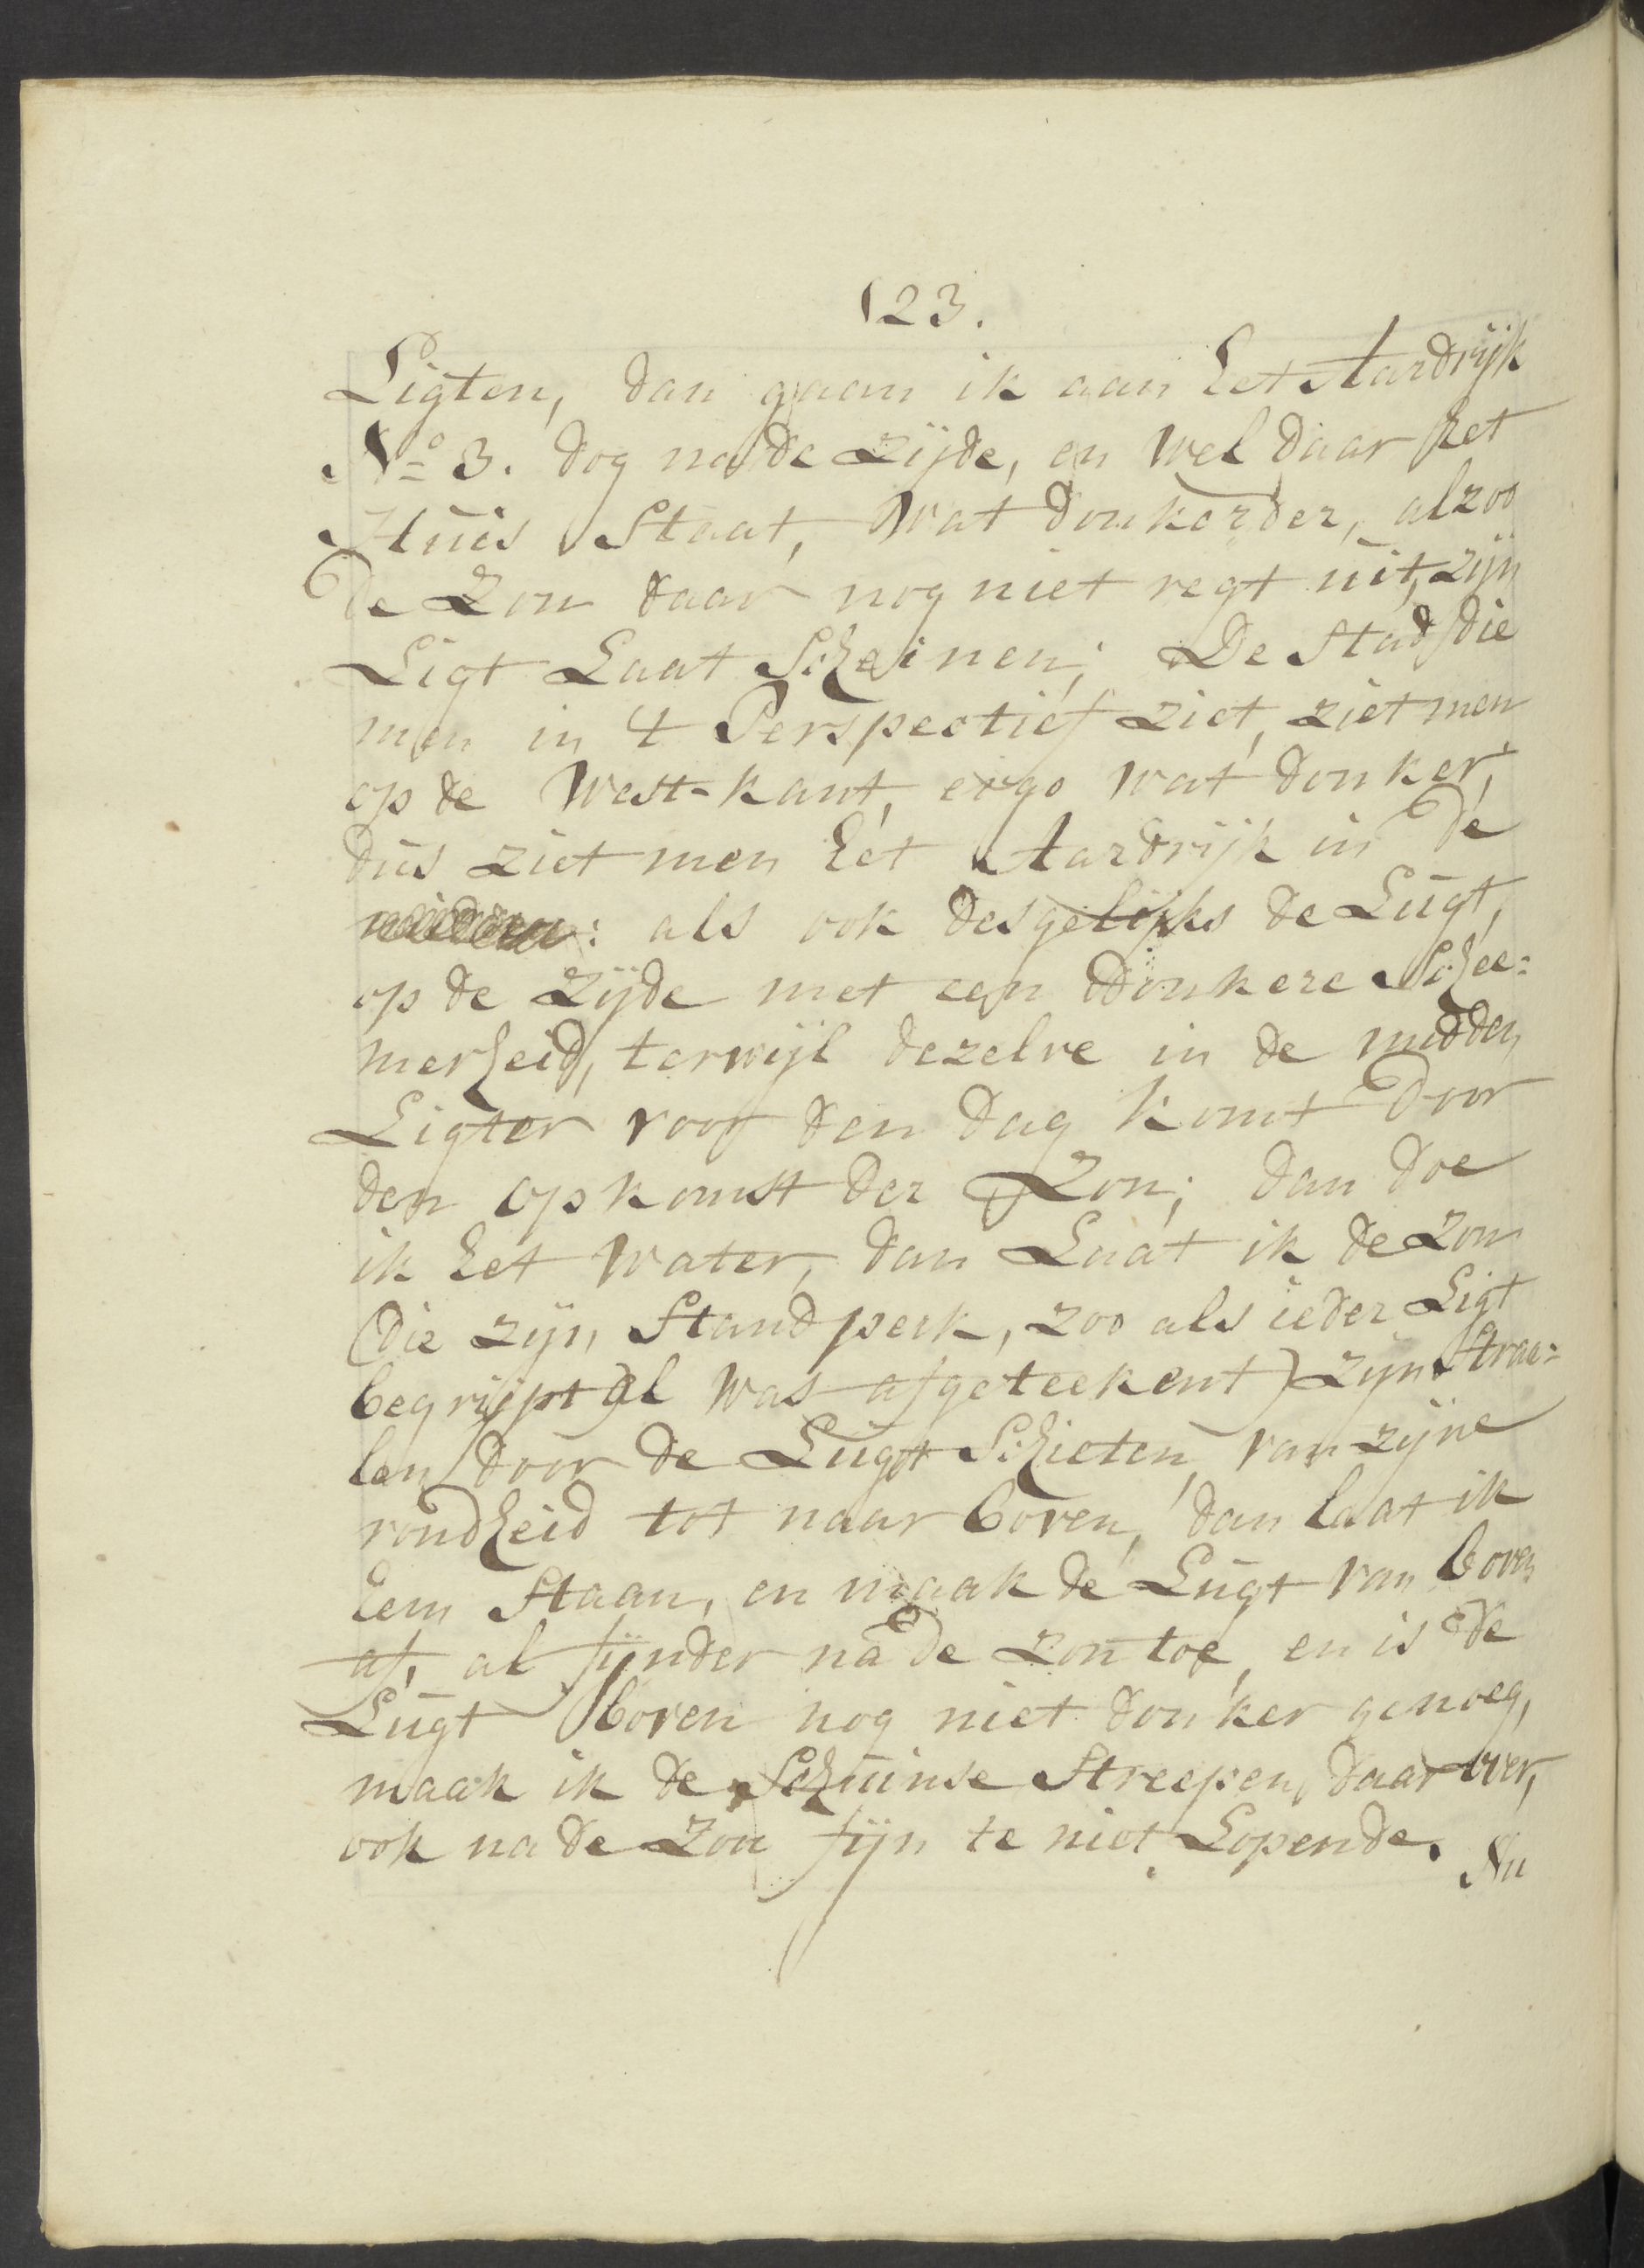 123.
Ligten, dan gaan ik aan het Aardrijk
No. 3. dog na de zijde, en wel daar het
Huis Staat, wat donkerder, alzoo
de Zon daar nog niet regt uit, zijn
Ligt Laat Scheinen; De Stad die
men in 't Perspectief ziet, ziet men
op de West-kant, ergo wat donker,
dus ziet men het Aardrijk in de
: als ook desgelijks de Lugt,
op de Zijde met een donkere Schee=
merheid, terwijl dezelve in de midden
Ligter voor den dag komt door
den opkomst der Zon; dan doe
ik het water, dan Laat ik de zon
(die zijn Standperk, zoo als ieder Ligt
begrijpt al was afgeteekent) zijn Straa=
len door de Lugt Schieten, van zijne
rondheid tot naar boven, dan laat ik
hem Staan, en maak de Lugt van boven
af, al fijnder na de zon toe, en is de
Lugt boven nog niet donker genoeg,
maak ik de Schuinse Streepen, daar over,
ook na de Zon fijn te niet Lopende.
Nu